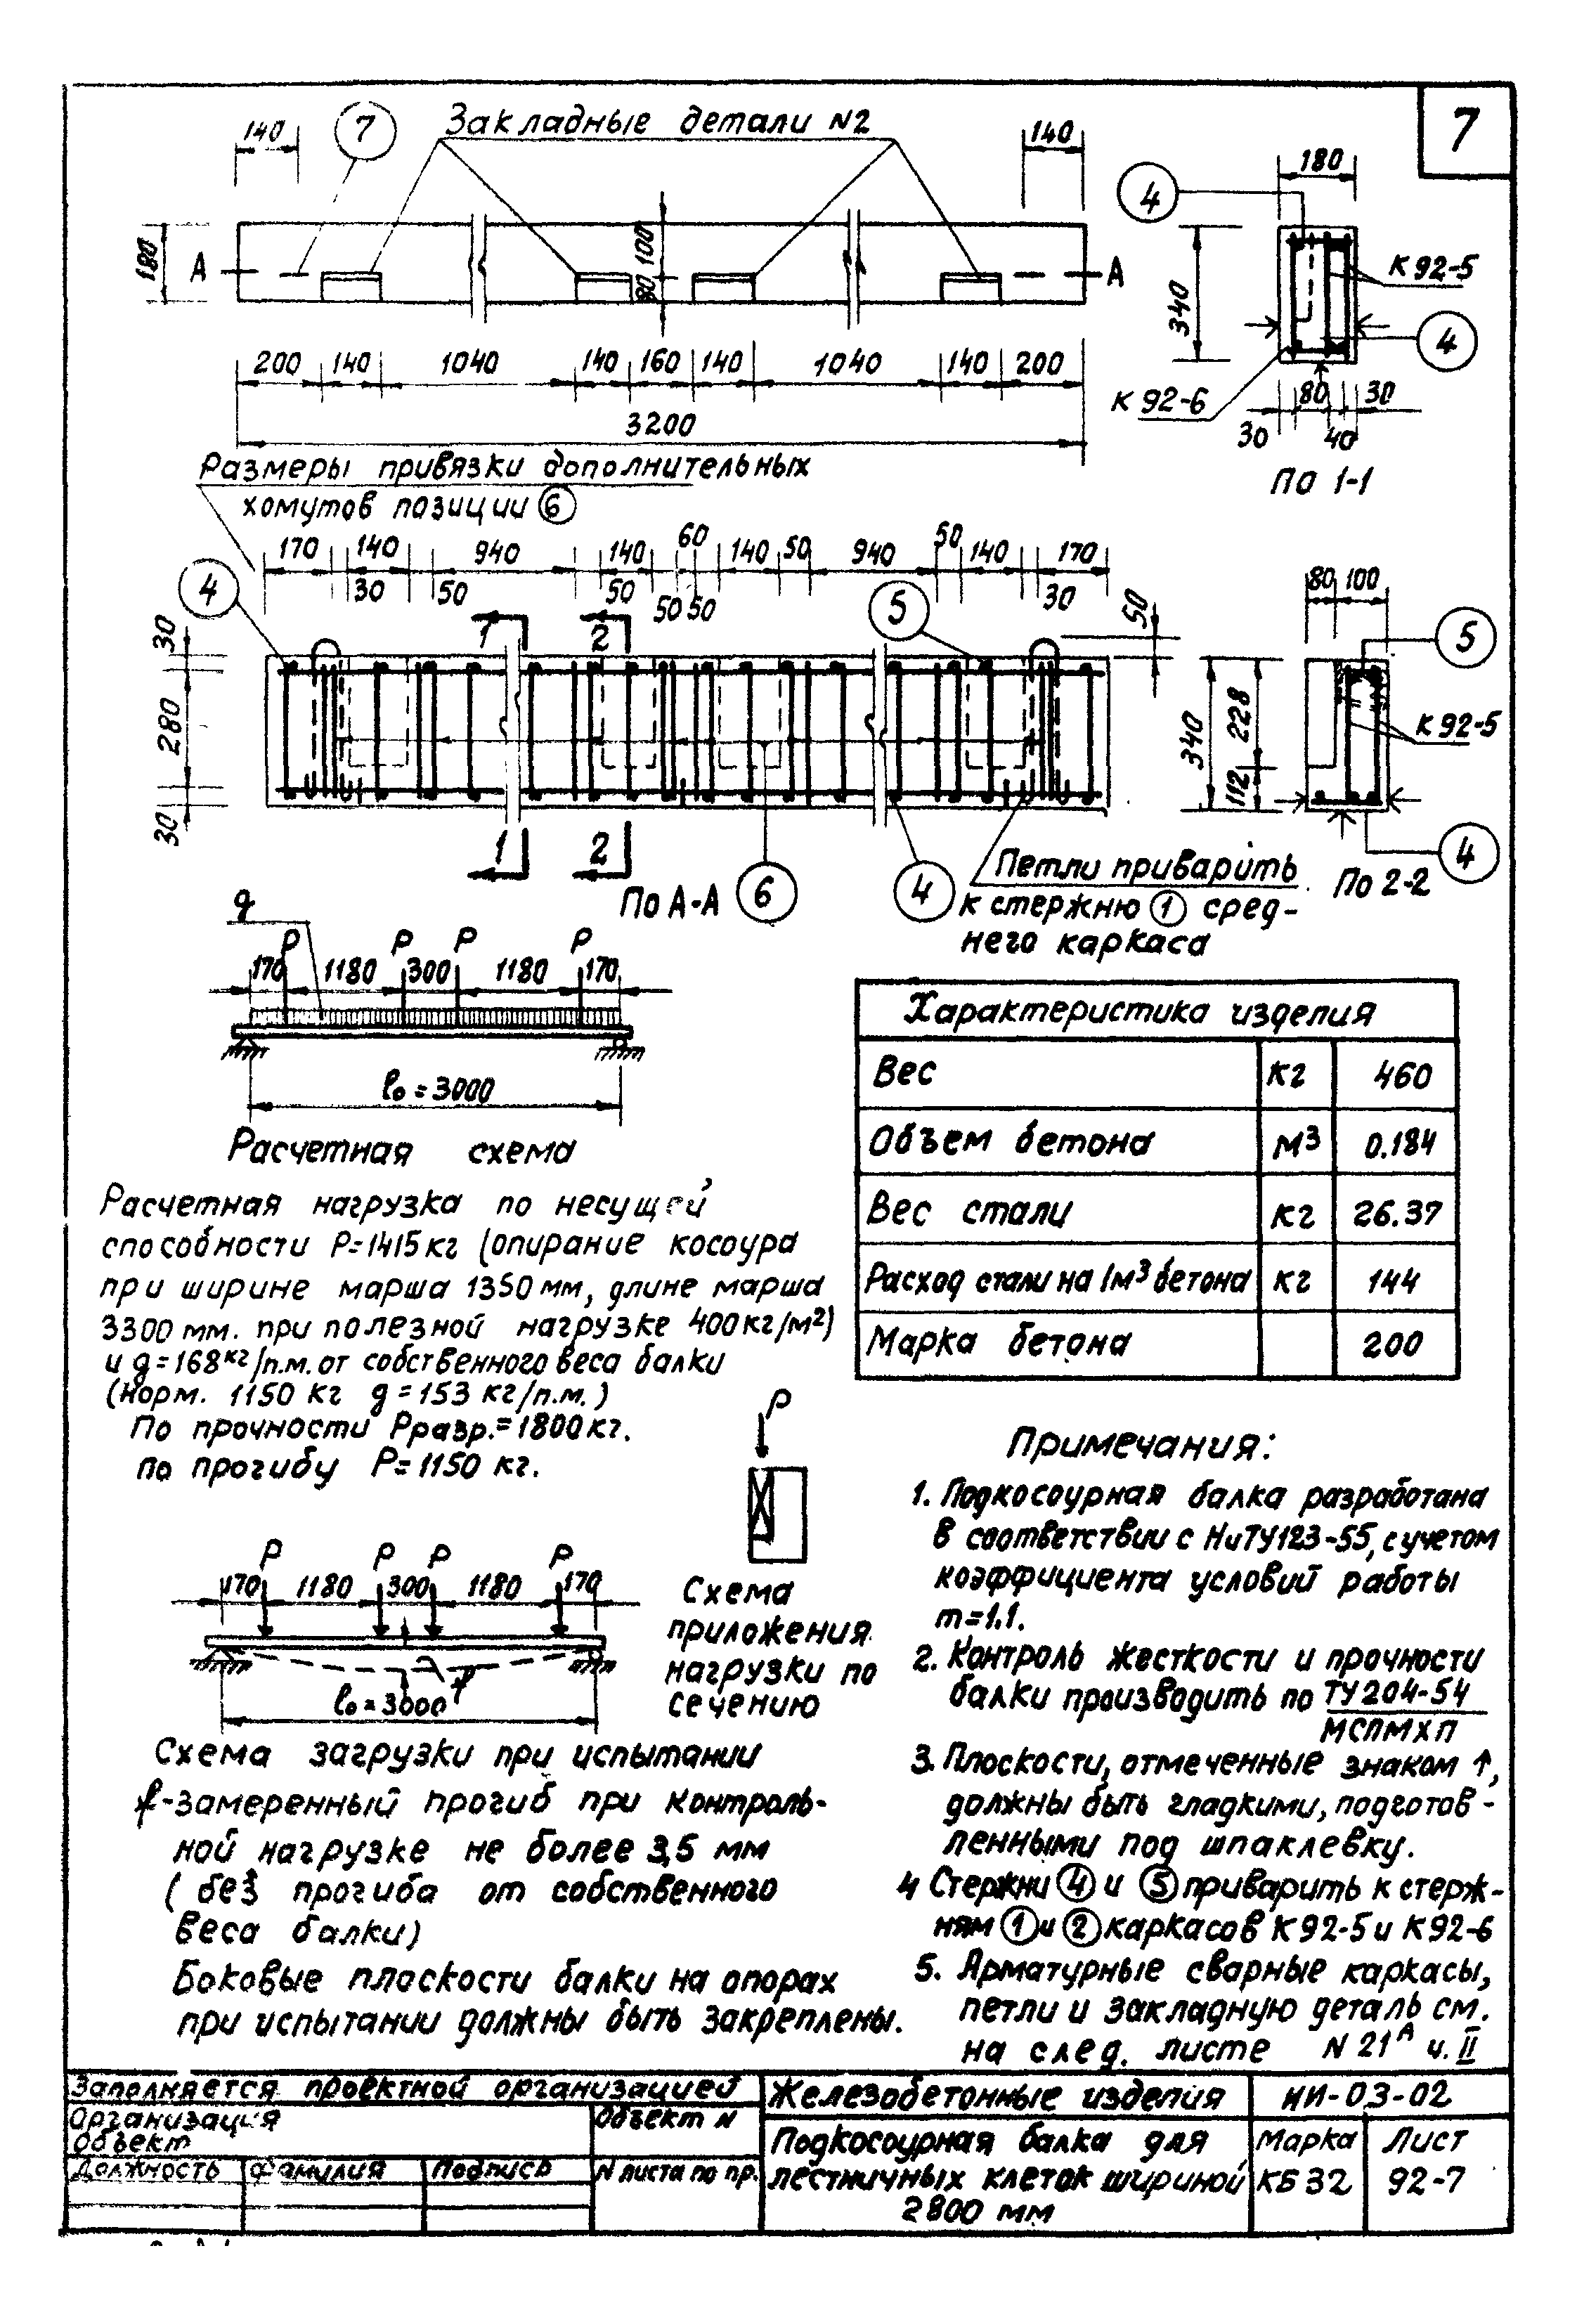 7
140
7
Закладные детали N2
140
180
А
100
80
А
200 140 1040 140 160 140 1040 140 200
3200
180
4
К 92-5
340
4
К 92-6
30 80 40 30
По 1-1
Размеры привязки дополнительных
хомутов позиции 6
170 140 940 140 60 140 50 940 50 140 170
30 50 50 50 50 30
4
5
50
30
280
30
1 2
1 2
По А-А
6
4
Петли приварить
к стержню 1 сред-
него каркаса
80 100
5
340
228
112
К 92-5
4
По 2-2
q
Р Р Р Р
170 1180 300 1180 170
l₀=3000
Расчетная схема
Расчетная нагрузка по несущей
способности Р=1415кг (опирание косоура
при ширине марша 1350 мм, длине марша
3300 мм. при полезной нагрузке 400кг/м²)
и g=168кг/п.м. от собственного веса балки
(норм. 1150 кг g=153 кг/п.м.)
По прочности Рразр.=1800кг.
по прогибу Р=1150 кг.
Характеристика изделия
Вес кг 460
Объем бетона м³ 0.184
Вес стали кг 26.37
Расход стали на 1м³ бетона кг 144
Марка бетона 200
Р
Схема
приложения
нагрузки по
сечению
Р Р Р Р
170 1180 300 1180 170
l₀=3000
f
Схема загрузки при испытании
f-замеренный прогиб при контроль-
ной нагрузке не более 3,5 мм
(без прогиба от собственного
веса балки)
Боковые плоскости балки на опорах
при испытании должны быть закреплены.
Примечания:
1. Подкосоурная балка разработана
в соответствии с НиТУ123-55, с учетом
коэффициента условий работы
m=1.1.
2. Контроль жесткости и прочности
балки производить по ТУ 204-54
МСПМХП
3. Плоскости, отмеченные знаком ↑,
должны быть гладкими, подготов-
ленными под шпаклевку.
4 Стержни 4 и 5 приварить к стерж-
ням 1 и 2 каркасов К 92-5 и К 92-6
5. Арматурные сварные каркасы,
петли и закладную деталь см.
на след. листе N 21А ч. II
Заполняется проектной организацией
Организация
Объект
Объект N
Должность Фамилия Подпись N листа по пр.
Железобетонные изделия ИИ-03-02
Подкосоурная балка для
лестничных клеток шириной
2800 мм
Марка
КБ 32
Лист
92-7